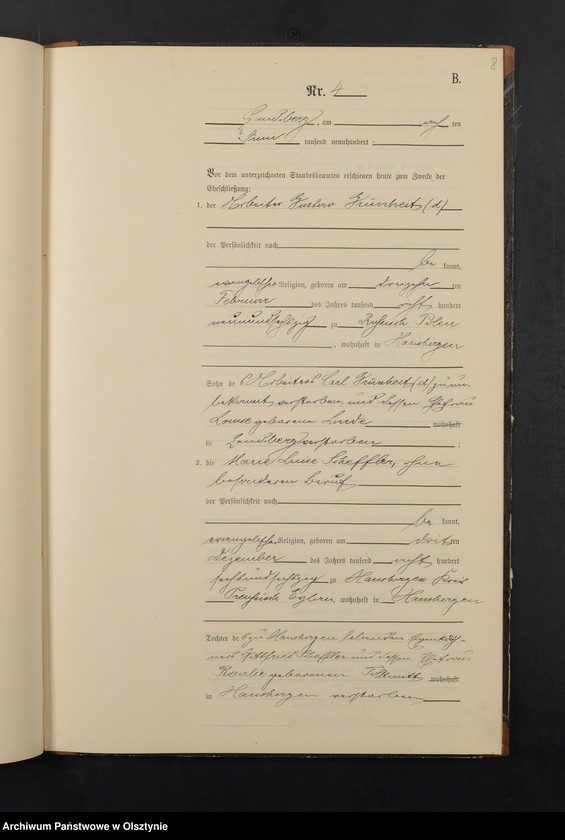 8
B.
Nr. 4
Landsberg, am acht ten
Juni tausend neunhundert
Vor dem unterzeichneten Standesbeamten erschienen heute zum Zwecke der
Eheschließung:
1. der Arbeiter Gustav Grünheit (d)
der Persönlichkeit nach
be kannt,
evangelischer Religion, geboren am dreizehn ten
Februar des Jahres tausend acht hundert
neunundsechzig zu Russisch Polen
, wohnhaft in Hanshagen
Sohn des Arbeiters Carl Grünheit (d) zu un-
bekannt verstorben, und dessen Ehefrau
Louise geborene Linde wohnhaft
in Landsberg verstorben ;
2. die Marie Luise Scheffler, ohne
besonderen Beruf
der Persönlichkeit nach
be kannt,
evangelischer Religion, geboren am dritten
Dezember des Jahres tausend acht hundert
sechsundsechzig zu Hanshagen Kreis
Preußisch Eylau, wohnhaft in Hanshagen
Tochter des zu Hanshagen lebenden Eigenkäth-
ners Gottfried Scheffler und dessen Ehefrau
Rosalie geborenen wohnhaft
in Hanshagen verstorben
Archiwum Państwowe w Olsztynie